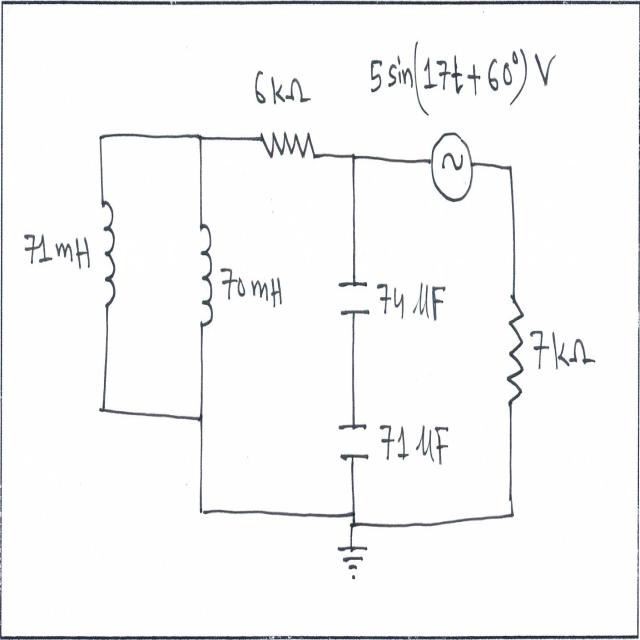 5sin(17t+60°) V
6kΩ
71mH
70mH
74 μF
7kΩ
71 μF